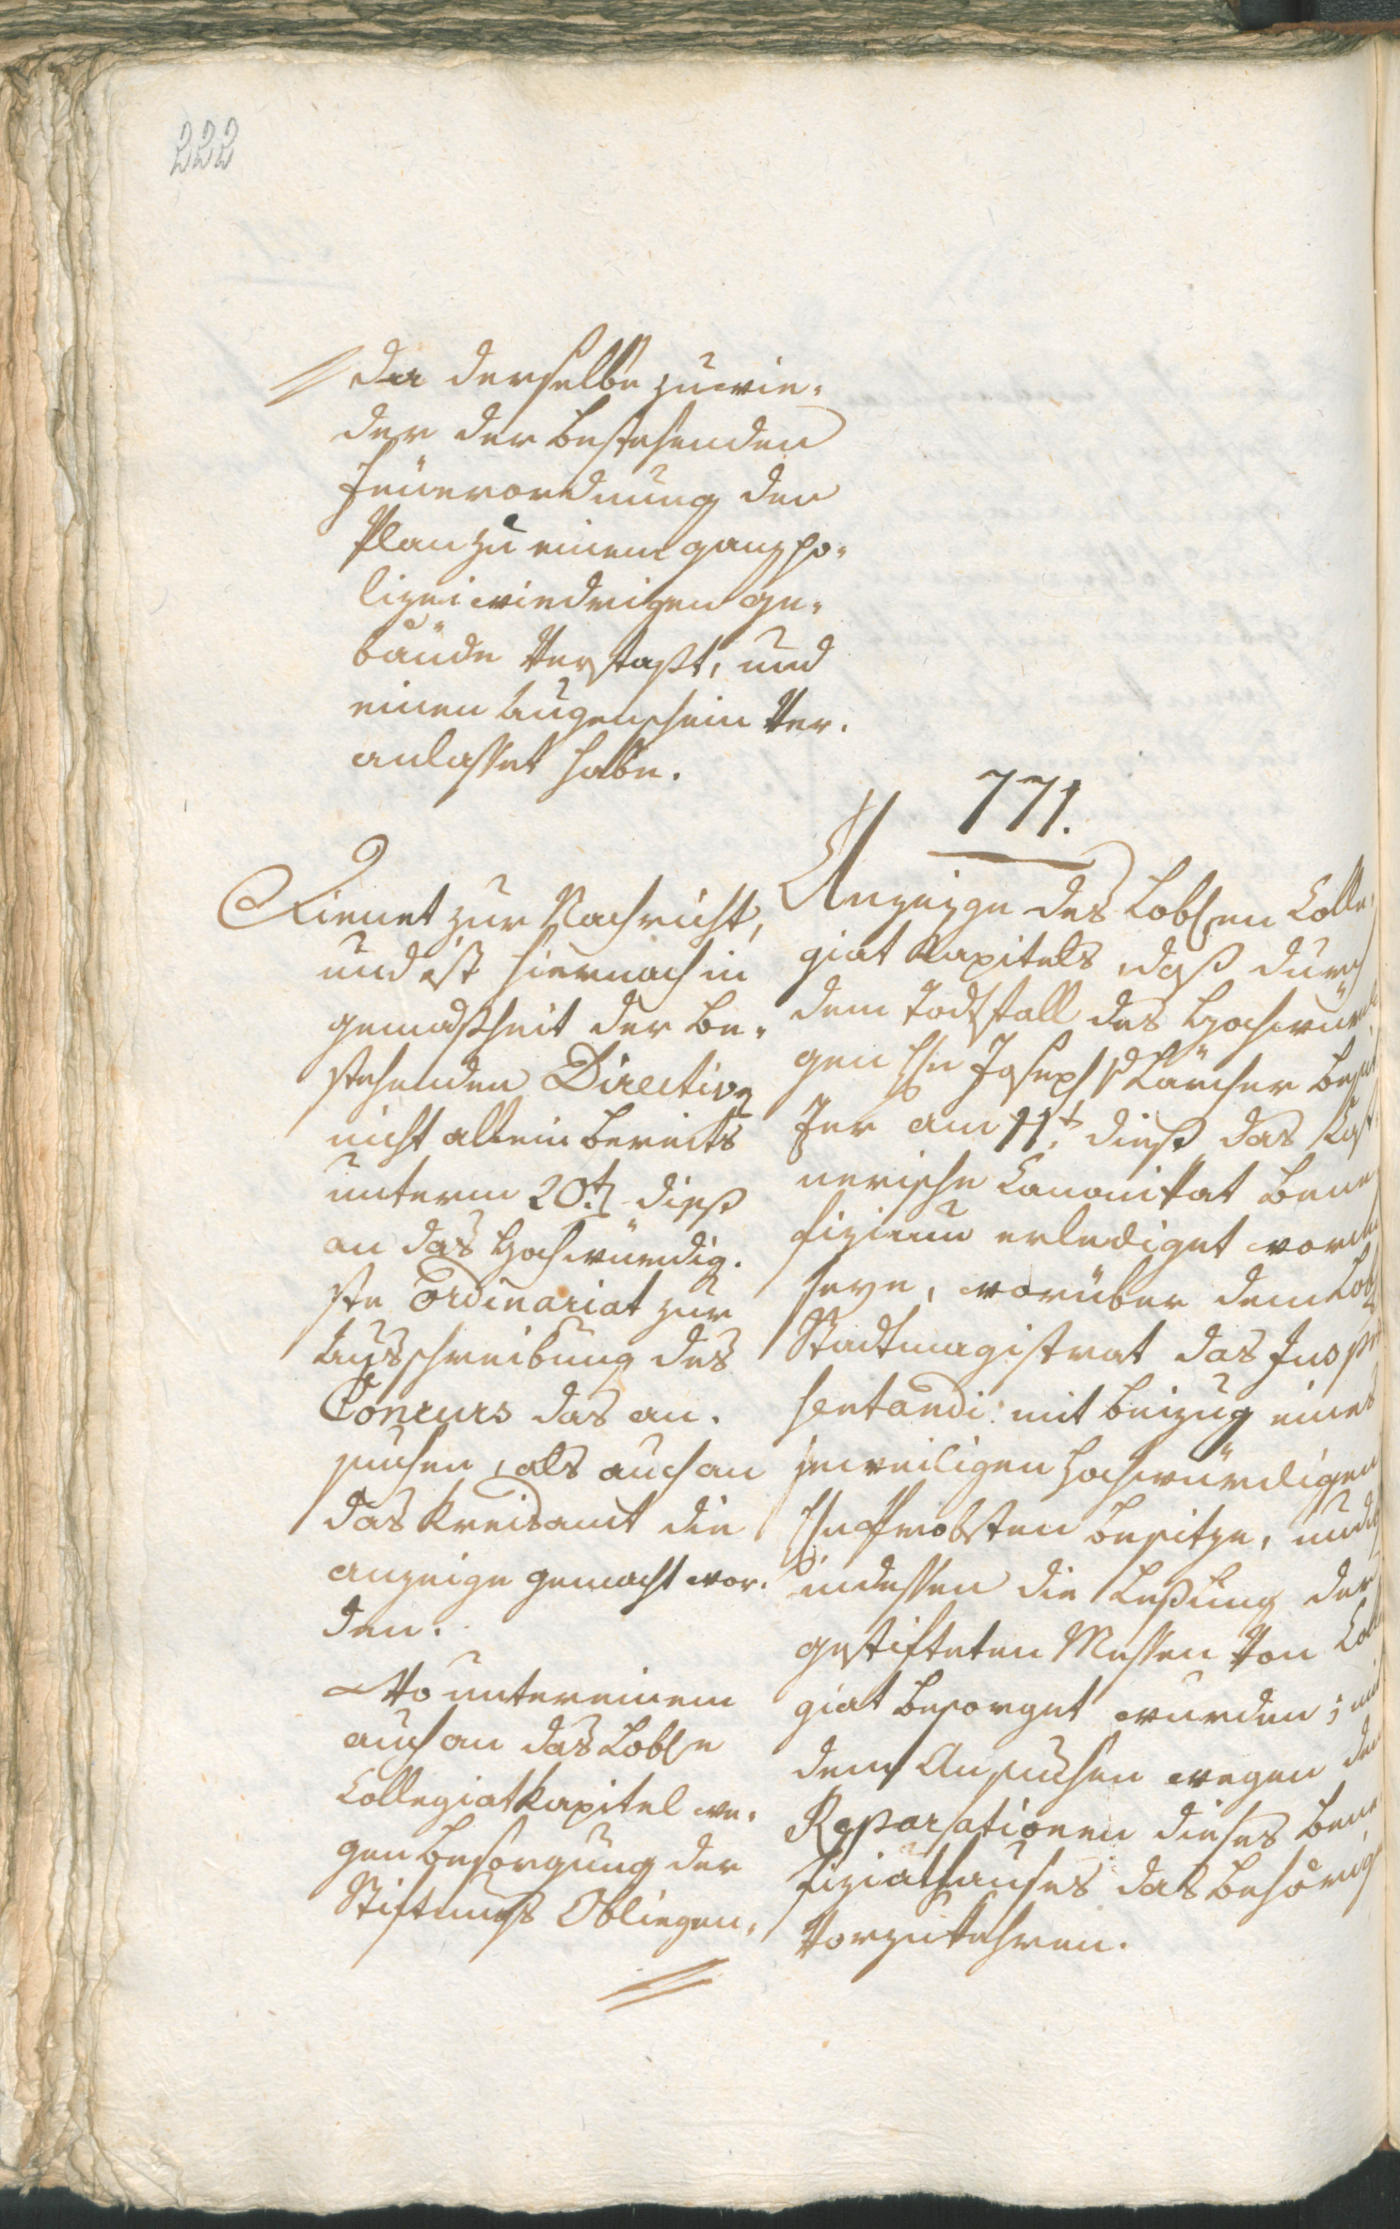 222
da derselbe zuwie-
der der bestehenden
Feüerordnung den
Plan zu einem ganz po-
lizeiwiedrigen ge-
bäude Verfaßt, und
einen Augenschein Ver-
anlasset habe.
771.
Dienet zur Nachricht,
und ist hiernach in
gemäßheit der be-
stehenden Directive
nicht allein bereits
unterm 20t. dieß
an das Hochwürdig-
ste Ordinariat zur
Ausschreibung des
Concurs das an-
suchen, als auch an
das Kreisamt die
anzeige gemacht wor-
den.
Wo untereinem
auch an das Loble
Collegiatkapitel we-
gen besorgung der
Stiftungs Obliegen-
Anzeige des Loblen Colle-
giat Kapitels, daß durch
dem Todtfall des Hochwürdi
gen Hn Joseph Lärcher
am 11t. dieß das
nerische Canonikat Bene
fizium erlediget worden
seye, worüber dem Lobl
Stadtmagistrat das Jus pr
sentandi mit beizug eines
jeweiligen Hochwürdigen
Hn Probsten besitze, und
indessen die Leßung der
gestifteten Messen Von Coll
giat besorget wurden; mit
dem Ansuchen wegen den
Reparationen dieses Bene
fiziathauses das behörige
Vorzukehren.